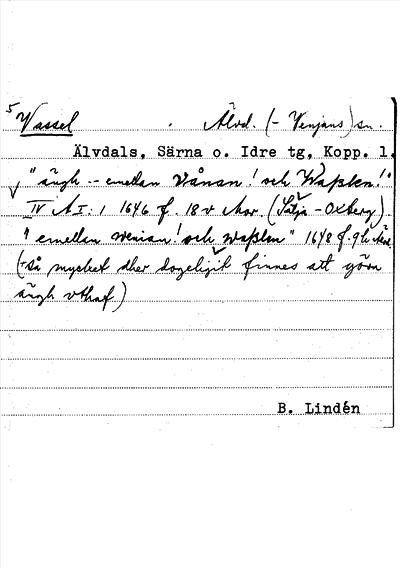 5 Vassel . Älvd. (- Venjans) sn.
Älvdals, Särna o. Idre tg, Kopp. l.
"ängh -- emellan Vånan! och Waßlen!"
IV A I: 1 1646 f. 18 v Mor. (Selja - Oxberg).
"emellan wenian! och waßlen" 1648 f. 9
(- så mycket dher dogeligit finnes att göra
ängh vthaf)
B. Lindén